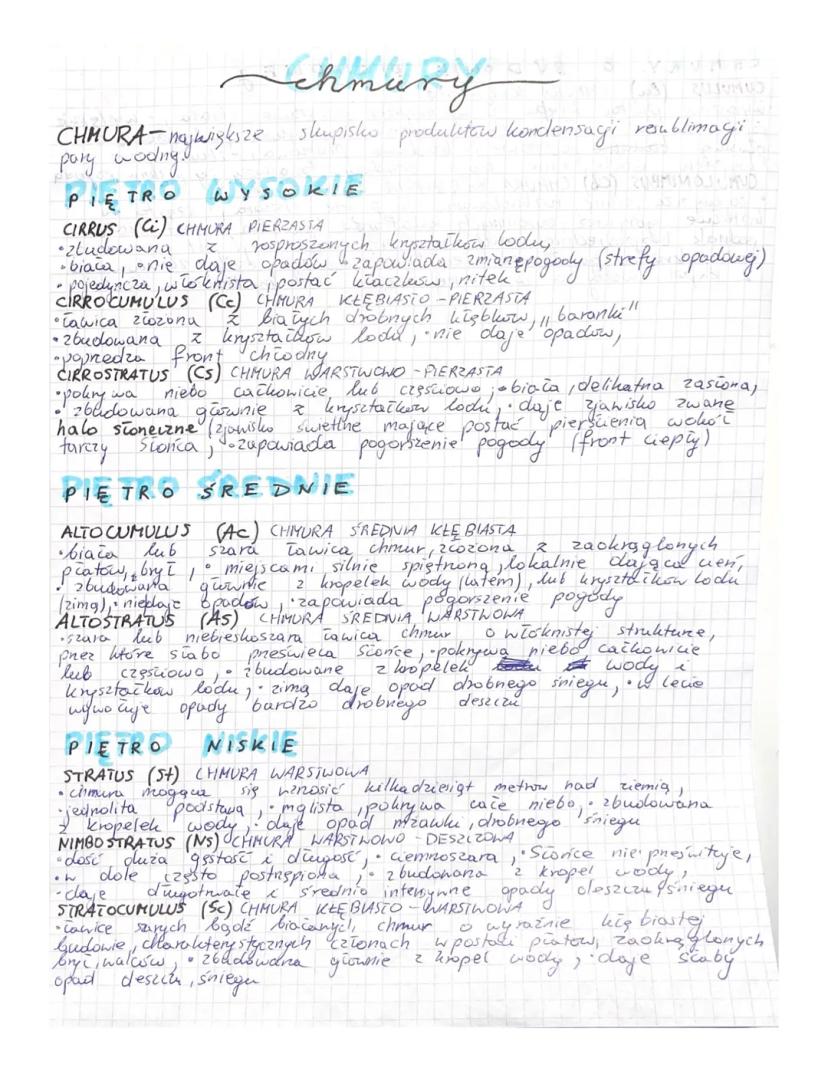 CHMURY
chmury
CHMURA - największe skupisko produktów kondensacji resublimacji
pary wodnej.
PIĘTRO WYSOKIE
CIRRUS (Ci) CHMURA PIERZASTA
•zbudowana z rosproszonych kryształków lodu,
•biała, •nie daje opadów •zapowiada zmianę pogody (strefy opadowej)
•pojedyńcza, włóknista, postać kłaczków, nitek
CIRROCUMULUS (Cc) CHMURA KŁĘBIASTO-PIERZASTA
•ławica złożona z białych drobnych kłębków, ,,baranki"
•zbudowana z kryształków lodu, •nie daje opadów,
•poprzedza front chłodny
CIRROSTRATUS (Cs) CHMURA WARSTWOWO-PIERZASTA
•pokrywa niebo całkowicie, lub częściowo, •biała, delikatna zasłona,
•zbudowana głównie z kryształków lodu, •daje zjawisko zwane
halo słoneczne (zjawisko świetlne mające postać pierścienia wokół
tarczy słońca), •zapowiada pogorszenie pogody (front ciepły)
PIĘTRO ŚREDNIE
ALTOCUMULUS (Ac) CHMURA ŚREDNIA KŁĘBIASTA
•biała lub szara ławica chmur, złożona z zaokrąglonych
płatów, brył, •miejscami silnie spiętrzona, lokalnie dająca cień,
•zbudowana głównie z kropelek wody (latem), lub kryształków lodu
(zimą), •niedaje opadów, •zapowiada pogorszenie pogody
ALTOSTRATUS (As) CHMURA ŚREDNIA WARSTWOWA
•szara lub niebieskoszara ławica chmur o włóknistej strukturze,
przez które słabo prześwieca słońce, •pokrywa niebo całkowicie
lub częściowo, •zbudowane z kropelek wody i
kryształków lodu, •zimą daje opad drobnego śniegu, •w lecie
wywołuje opady bardzo drobnego deszczu
PIĘTRO NISKIE
STRATUS (St) CHMURA WARSTWOWA
•chmura mogąca się wznosić kilkadziesiąt metrów nad ziemią,
•jednolita podstawa, •mglista, pokrywa całe niebo, •zbudowana
z kropelek wody, •daje opad mżawki, drobnego śniegu
NIMBOSTRATUS (Ns) CHMURA WARSTWOWO-DESZCZOWA
•dość duża gęstość i długość, •ciemnoszara, •Słońce nie prześwituje,
•w dole często postrzępiona, •zbudowana z kropel wody,
•daje długotrwałe i średnio intensywne opady deszczu/śniegu
STRATOCUMULUS (Sc) CHMURA KŁĘBIASTO-WARSTWOWA
•ławice szarych bądź białawych chmur o wyraźnie kłębiastej
budowie, charakterystycznych członach w postaci płatów, zaokrąglonych
brył, walców, •zbudowana głównie z kropel wody, •daje słaby
opad deszczu, śniegu